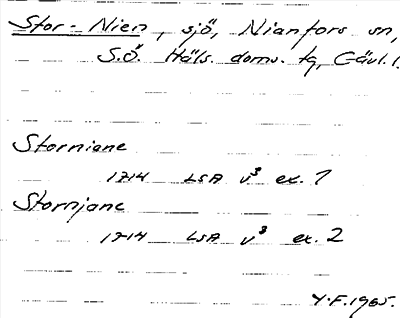 Stor-Nien, sjö, Nianfors sn,
S.Ö. Häls. doms. tg, Gävl. l.
Storniane
1714 LSA v³ ex. 1
Stornjane
1714 LSA v³ ex. 2
Y.F. 1965.